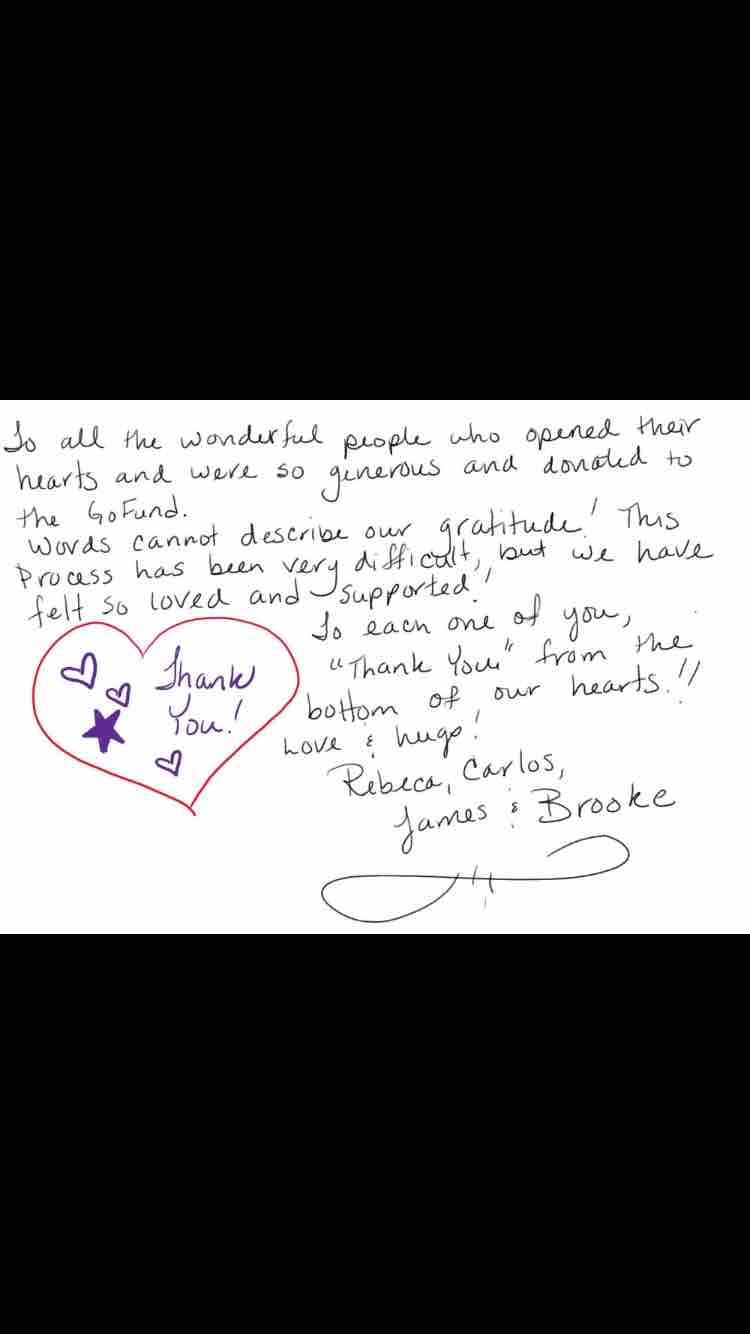 To all the wonderful people who opened their
hearts and were so generous and donated to
the GoFund.
Words cannot describe our gratitude! This
Process has been very difficult, but we have
felt so loved and supported!
To each one of you,
"Thank You" from the
bottom of our hearts.!!
Love & hugs!
Rebeca, Carlos,
James & Brooke
Thank
You!